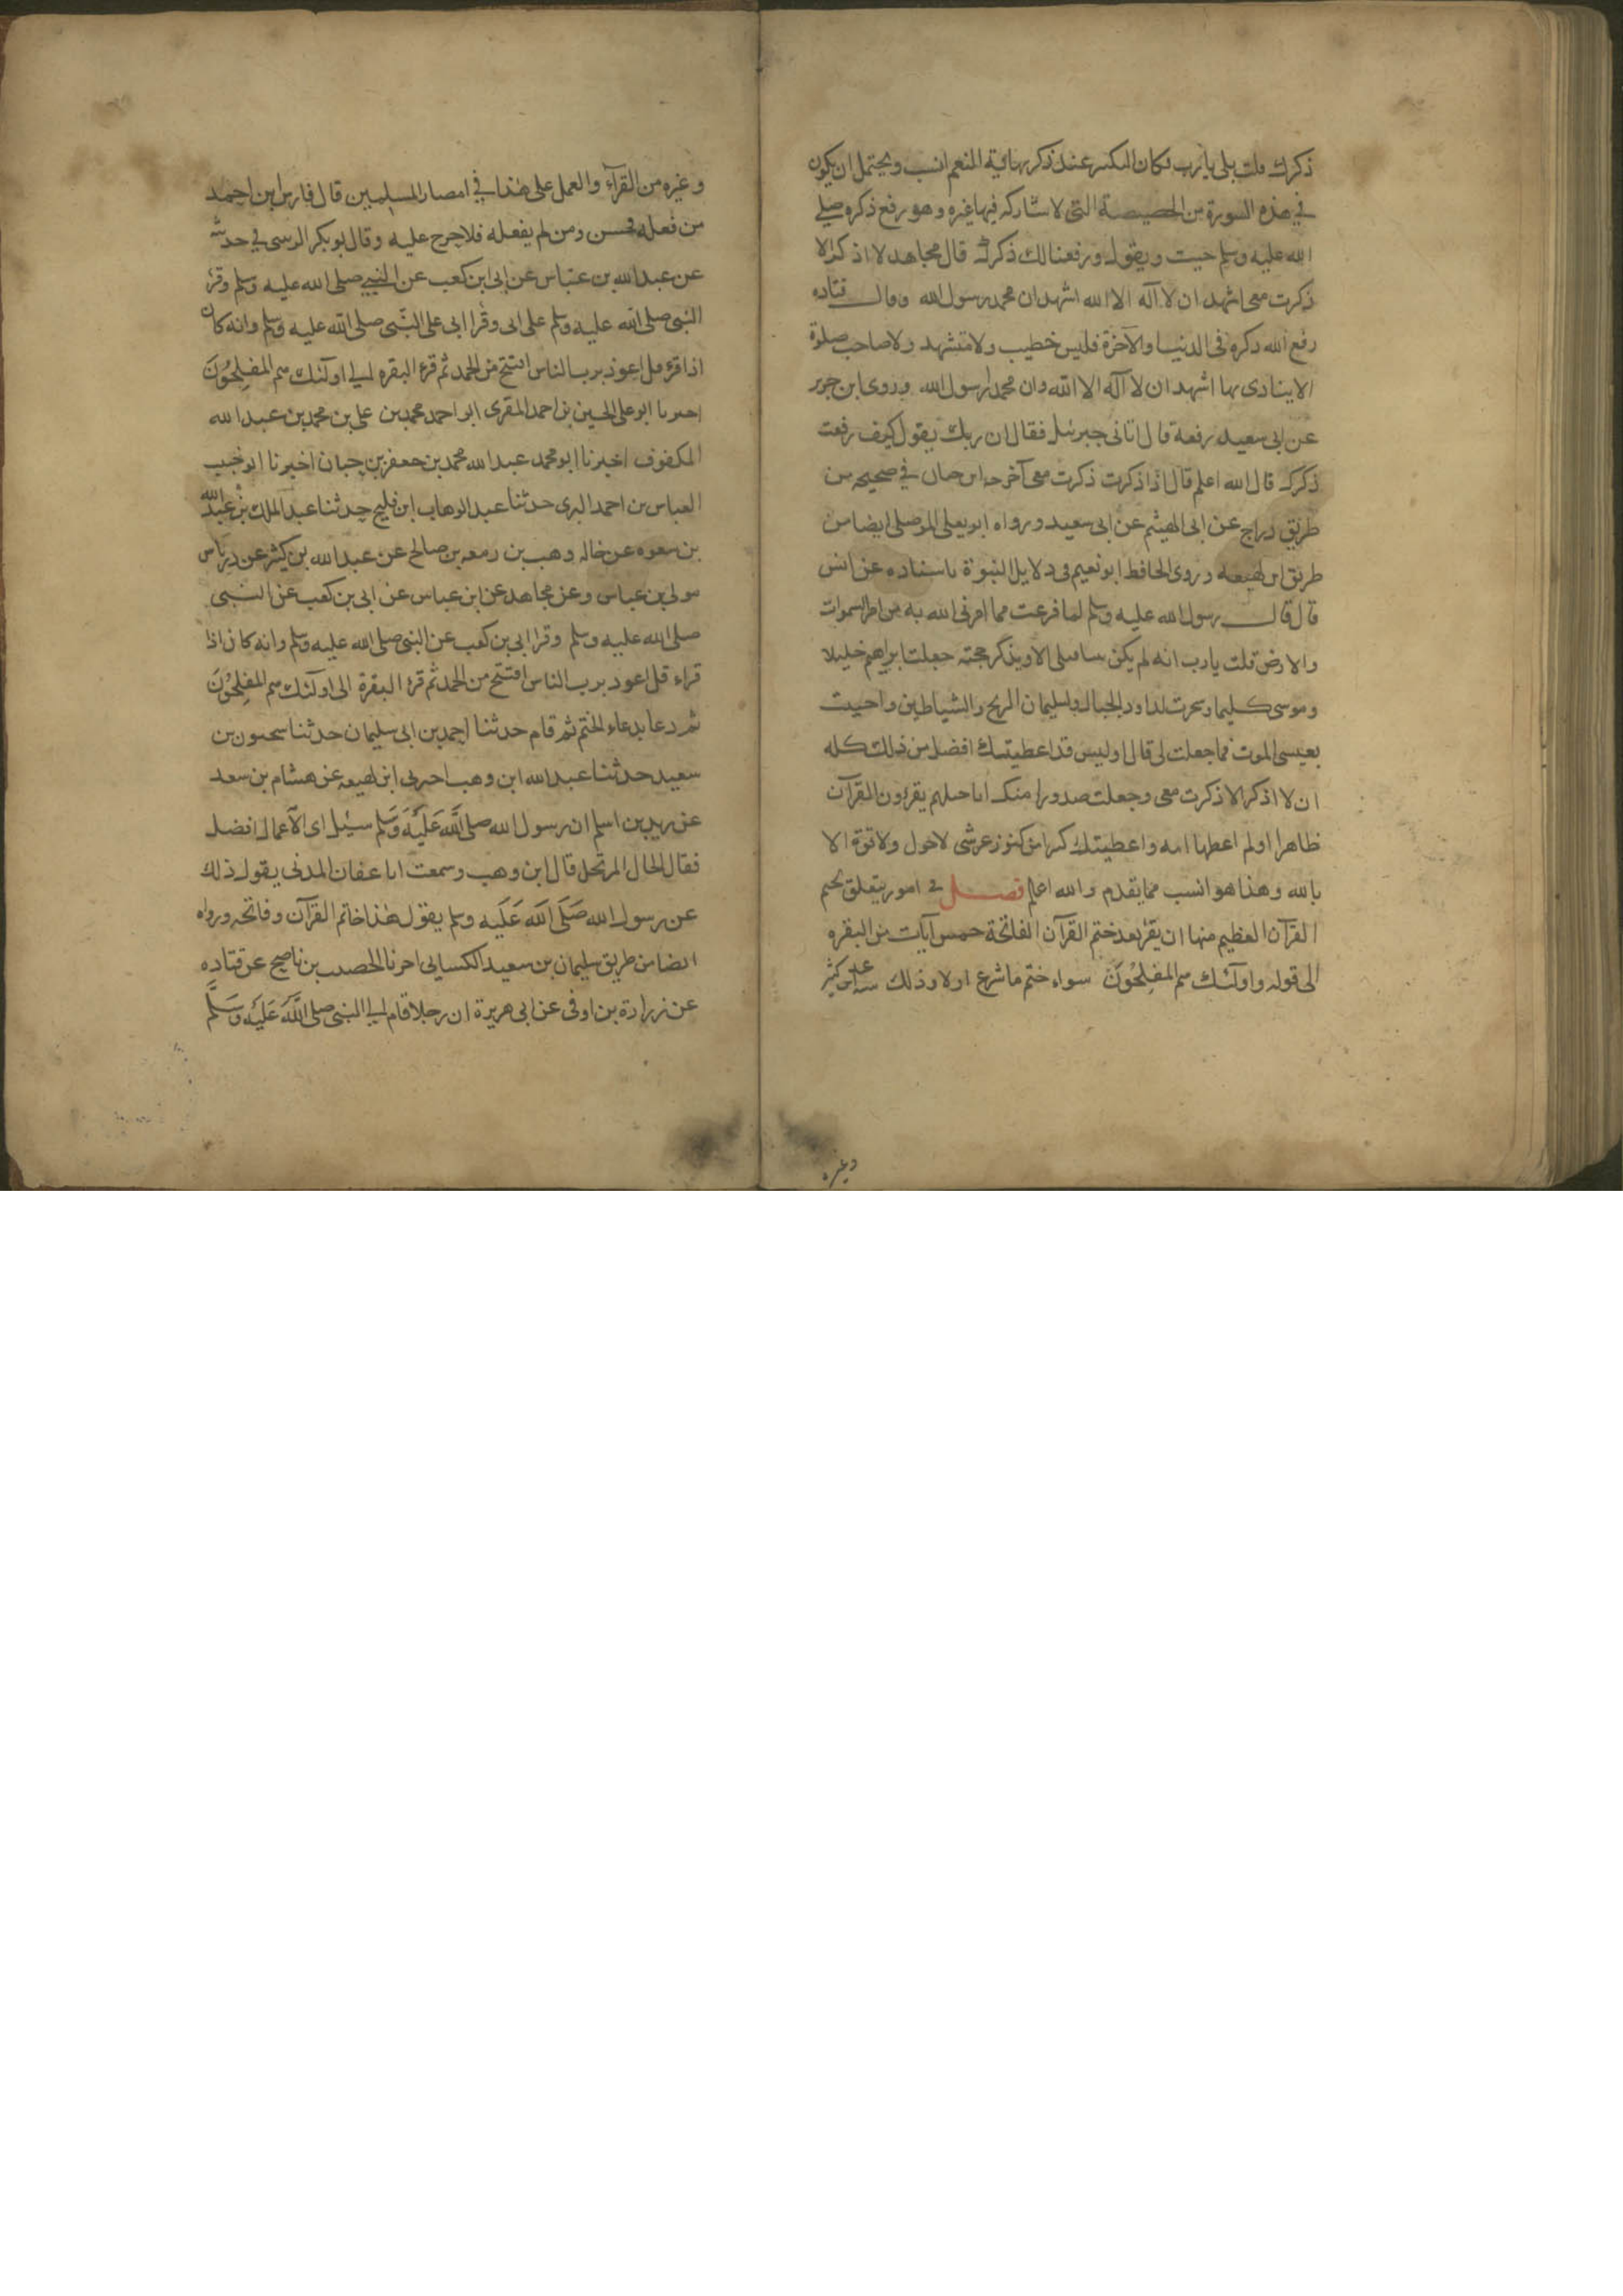 ذكرك قلت بلى يا رب فكان التكبير عند ذكر نهاية النعم انسب ويحتمل ان يكون
في هذه السورة من الخصيصة التي لا يشاركه فيها غيره وهو رفع ذكره صلى
الله عليه وسلم حيث ويقول ورفعنا لك ذكرك قال مجاهد لا اذكر الا
ذكرت معي اشهد ان لا اله الا الله اشهد ان محمد رسول الله وقال قتاده
رفع الله ذكره في الدنيا والآخرة فليس خطيب ولا متشهد ولا صاحب صلوة
الا ينادى بها اشهد ان لا اله الا الله وان محمدا رسول الله وروى ابن جرير
عن ابى سعيد رفعة قال اتانى جبرئيل فقال ان ربك يقول كيف رفعت
ذكرك قال الله اعلم قال اذا ذكرت ذكرت معى اخرجه ابن حبان في صحيحه من
طريق دراج عن ابى الهيثم عن ابى سعيد ورواه ابو يعلى الموصلى ايضا من
طريق ابن لهيعه وروى الحافظ ابو نعيم فى دلايل النبوة باسناده عن انس
قال قال رسول الله عليه وسلم لما فرغت مما امرنى الله به من امر السموات
والارض قلت يا رب انه لم يكن الا وبذكر حجته جعلت ابراهيم خليلا
وموسى كليما وسخرت لداود الجبال ولسليمان الريح والشياطين واحييت
بعيسى الموت فما جعلت لى قال اوليس قد اعطيتك افضل من ذلك كله
ان لا اذكر الا ذكرت معى وجعلت صدور امتك اناجيلهم يقرؤن القرآن
ظاهرا ولم اعطها امه واعطيتك كنزا من كنوز عرشى لا حول ولا قوة الا
بالله وهذا هو انسب مما يقدم والله اعلم فصل في امور يتعلق بختم
القرآن العظيم منها ان يقرء بعد ختم القرآن الفاتحة خمس آيات من البقره
الى قوله واولئك هم المفلحون سواء ختم ما شرع اولا وذلك كثير
وغيره
وغيره من القرآء والعمل على هذا في امصار المسلمين قال فارس ابن احمد
من فعله فحسن ومن لم يفعله فلا حرج عليه وقال ابو بكر في حديثه
عن عبد الله بن عباس عن ابى ابن كعب عن النبي صلى الله عليه وسلم وقرء
النبى صلى الله عليه وسلم على ابى وقرا ابى على النبى صلى الله عليه وسلم وانه كان
اذا قرء قل اعوذ برب الناس افتتح من الحمد ثم قرء البقره الى اولئك هم المفلحون
اخبرنا ابو على الحسين بن احمد المقرى ابو احمد محمد بن على بن محمد بن عبد الله
المكفوف اخبرنا ابو محمد عبد الله محمد بن جعفر بن حبان اخبرنا ابو خبيب
العباس بن احمد البرى حدثنا عبد الوهاب ابن فليح حدثنا عبد الملك بن عبد الله
بن سعوه عن خاله وهب بن زمعه بن صالح عن عبد الله بن كثير عن درباس
مولى بن عباس وعن مجاهد عن ابن عباس عن ابى بن كعب عن النبى
صلى الله عليه وسلم وقرا ابى بن كعب عن النبى صلى الله عليه وسلم وانه كان اذا
قراء قل اعوذ برب الناس افتتح من الحمد ثم قرء البقرة الى اولئك هم المفلحون
ثم دعا بدعاء الختم ثم قام حدثنا احمد بن ابى سليمان حدثنا سحنون بن
سعيد حدثنا عبد الله ابن وهب اخبرنى ابن لهيعه عن هشام بن سعد
عن زيد بن اسلم ان رسول الله صلى الله عليه وسلم سئيل اى الاعمال افضل
فقال الحال المرتحل قال ابن وهب وسمعت ابا عفان المدنى يقول ذلك
عن رسول الله صلى الله عليه وسلم يقول هذا خاتم القرآن وفاتحه ورواه
ايضا من طريق سليمان بن سعيد الكسايى اخبرنا الخصيب بن ناصح عن قتاده
عن زرارة بن اوفى عن ابى هريرة ان رجلا قام الى النبى صلى الله عليه وسلم